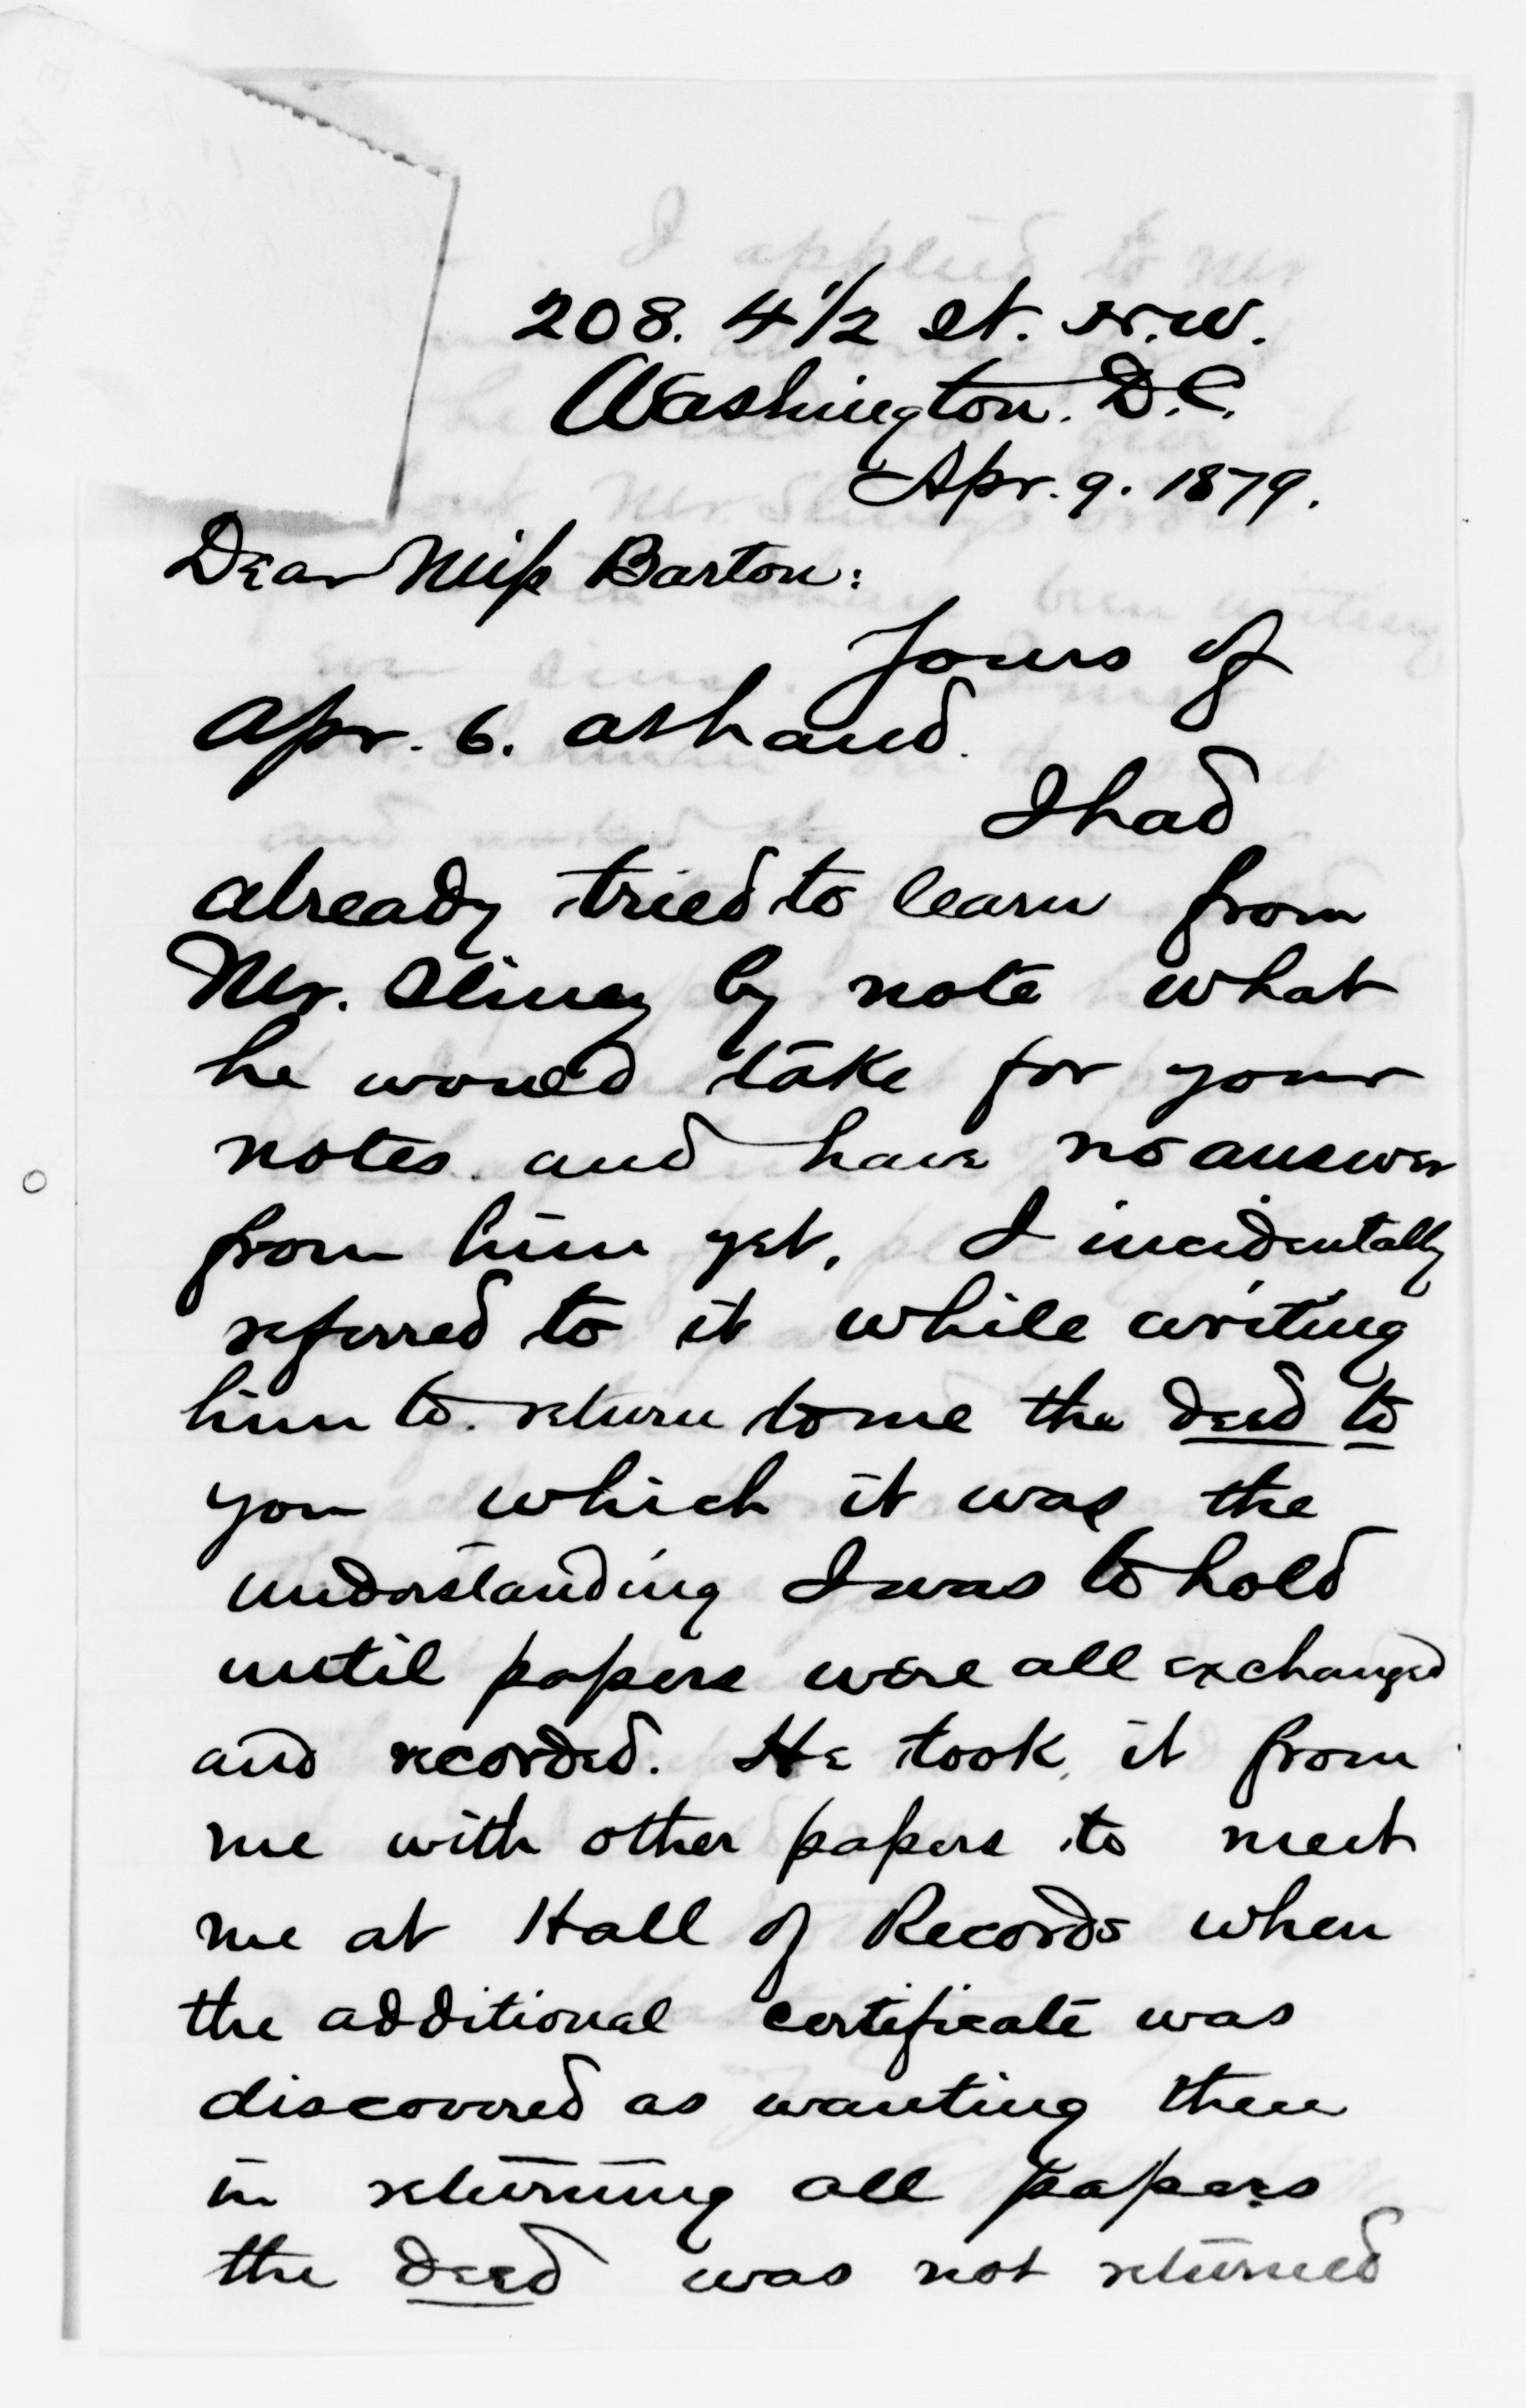 208. 4 1/2 St. N.W.
Washington. D.C.
Apr. 9. 1879.
Dear Miss Barton:
Yours of
Apr. 6. at hand.
I had
already tried to learn from
Mr. Sliney by note what
he would take for your
notes and have no answer
from him yet. I incidentally
referred to it while writing
him to return to me the deed to
you which it was the
understanding I was to hold
until papers were all exchanged
and recorded. He took it from
me with other papers to meet
me at Hall of Records when
the additional certificate was
discovered as wanting then
in returning all papers
the deed was not returned